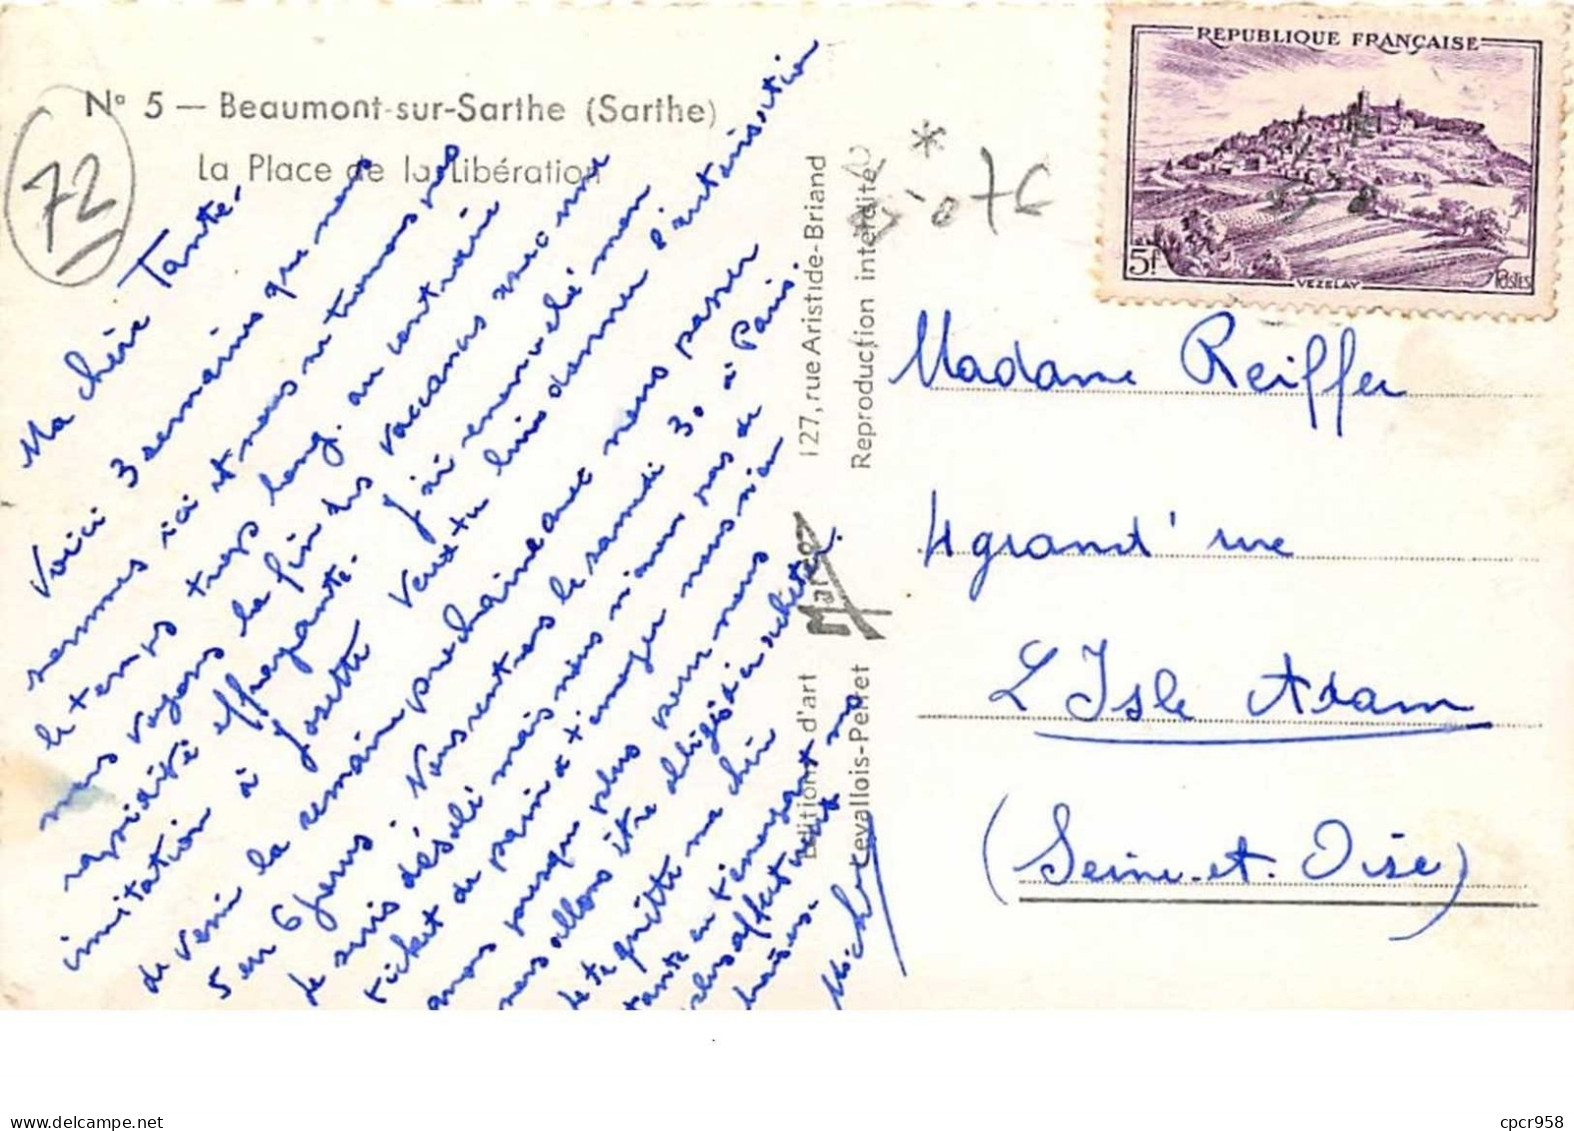 N° 5 — Beaumont-sur-Sarthe (Sarthe)
La Place de la Libération
72
Ma chère Tante.
Voici 3 semaines que nous
sommes ici et nous ne trouvons pas
le temps trop long. au contraire
nous voyons la fin des vaccances avec une
rapidité effrayante. J'ai renouvelé mon
invitation à Josette Veux-tu lui donner l'autorisation
de venir la semaine prochaine avec nous passer
5 ou 6 jours. Nous rentrons le samedi 30 à Paris.
Je suis désolé mais nous n'avons pas de
ticket de pain et manger nous n'en
avons presque plus pour nous
nous allons être obligés d'en acheter.
Je te quitte ma chère
tante en t'envoyant mes
plus affectueux
baisers.
Michel
Editions d'art
Levallois-Perret
Marco
127, rue Aristide-Briand
Reproduction interdite
REPUBLIQUE FRANÇAISE
5f
VEZELAY
POSTES
Madame Reiffer
4 grand' rue
L'Isle Adam
(Seine-et-Oise)
cpcr958